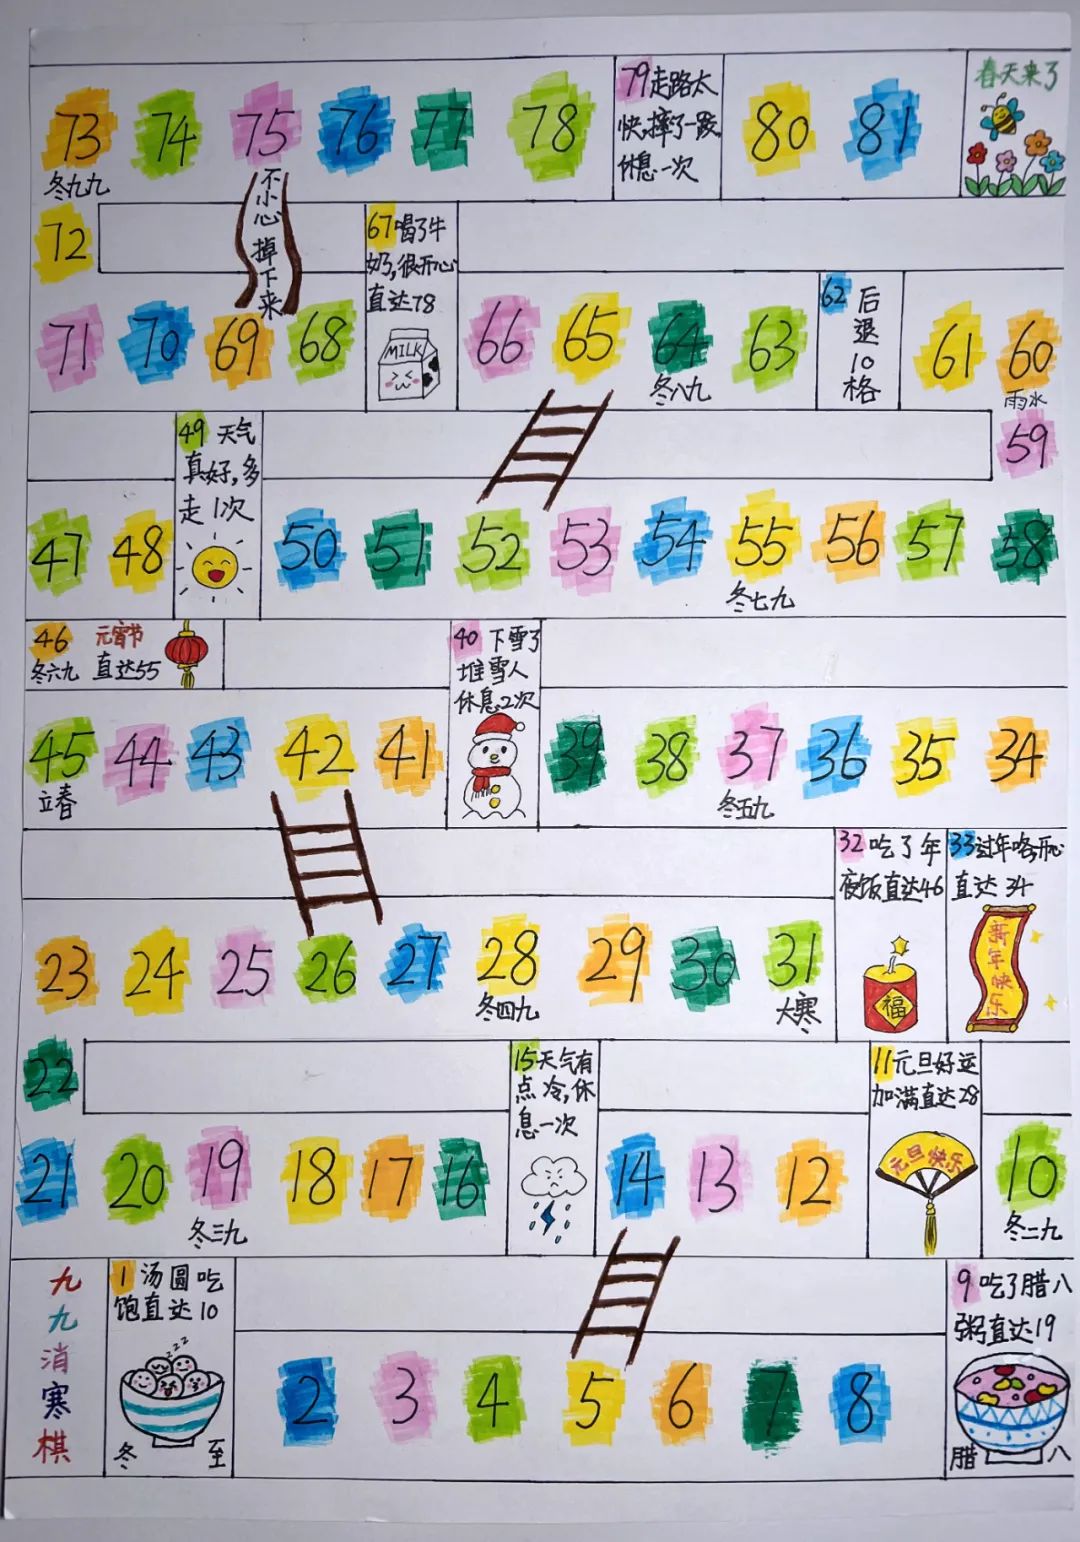 73 74 75 76 77 78
冬九九
79走路太
快,摔了一跤,
休息一次
80 81
春天来了
72
不小心掉下来
67喝了牛
奶,很开心
直达78
MILK
71 70 69 68
66 65 64 63
冬八九
62 后退10格
61 60
雨水
59
49 天气
真好,多
走1次
47 48
50 51 52 53 54 55 56 57 58
冬七九
46 元宵节
冬六九 直达55
40 下雪了
堆雪人
休息2次
45 44 43 42 41
立春
39 38 37 36 35 34
冬五九
32吃了年
夜饭直达46
福
33过年咯开心
直达34
新年快乐
23 24 25 26 27 28 29 30 31
冬四九 大寒
22
15天气有
点冷,休
息一次
11元旦好运
加满直达28
元旦快乐
21 20 19 18 17 16
冬三九
14 13 12
10
冬二九
九九消寒棋
1汤圆吃
饱直达10
zzz
冬至
2 3 4 5 6 7 8
9吃了腊八
粥直达19
腊八